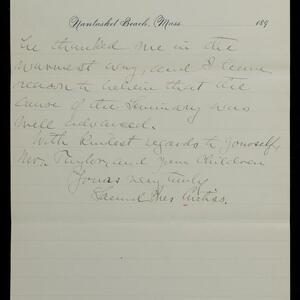 Nantasket Beach, Mass. 189
he thanked me in the
warmest way, and I have
reason to believe that the
cause of the Seminary was
well advanced.
With kindest regards to yourself,
Mrs. Taylor, and your children
Yours very truly
Samuel Ives Curtiss.